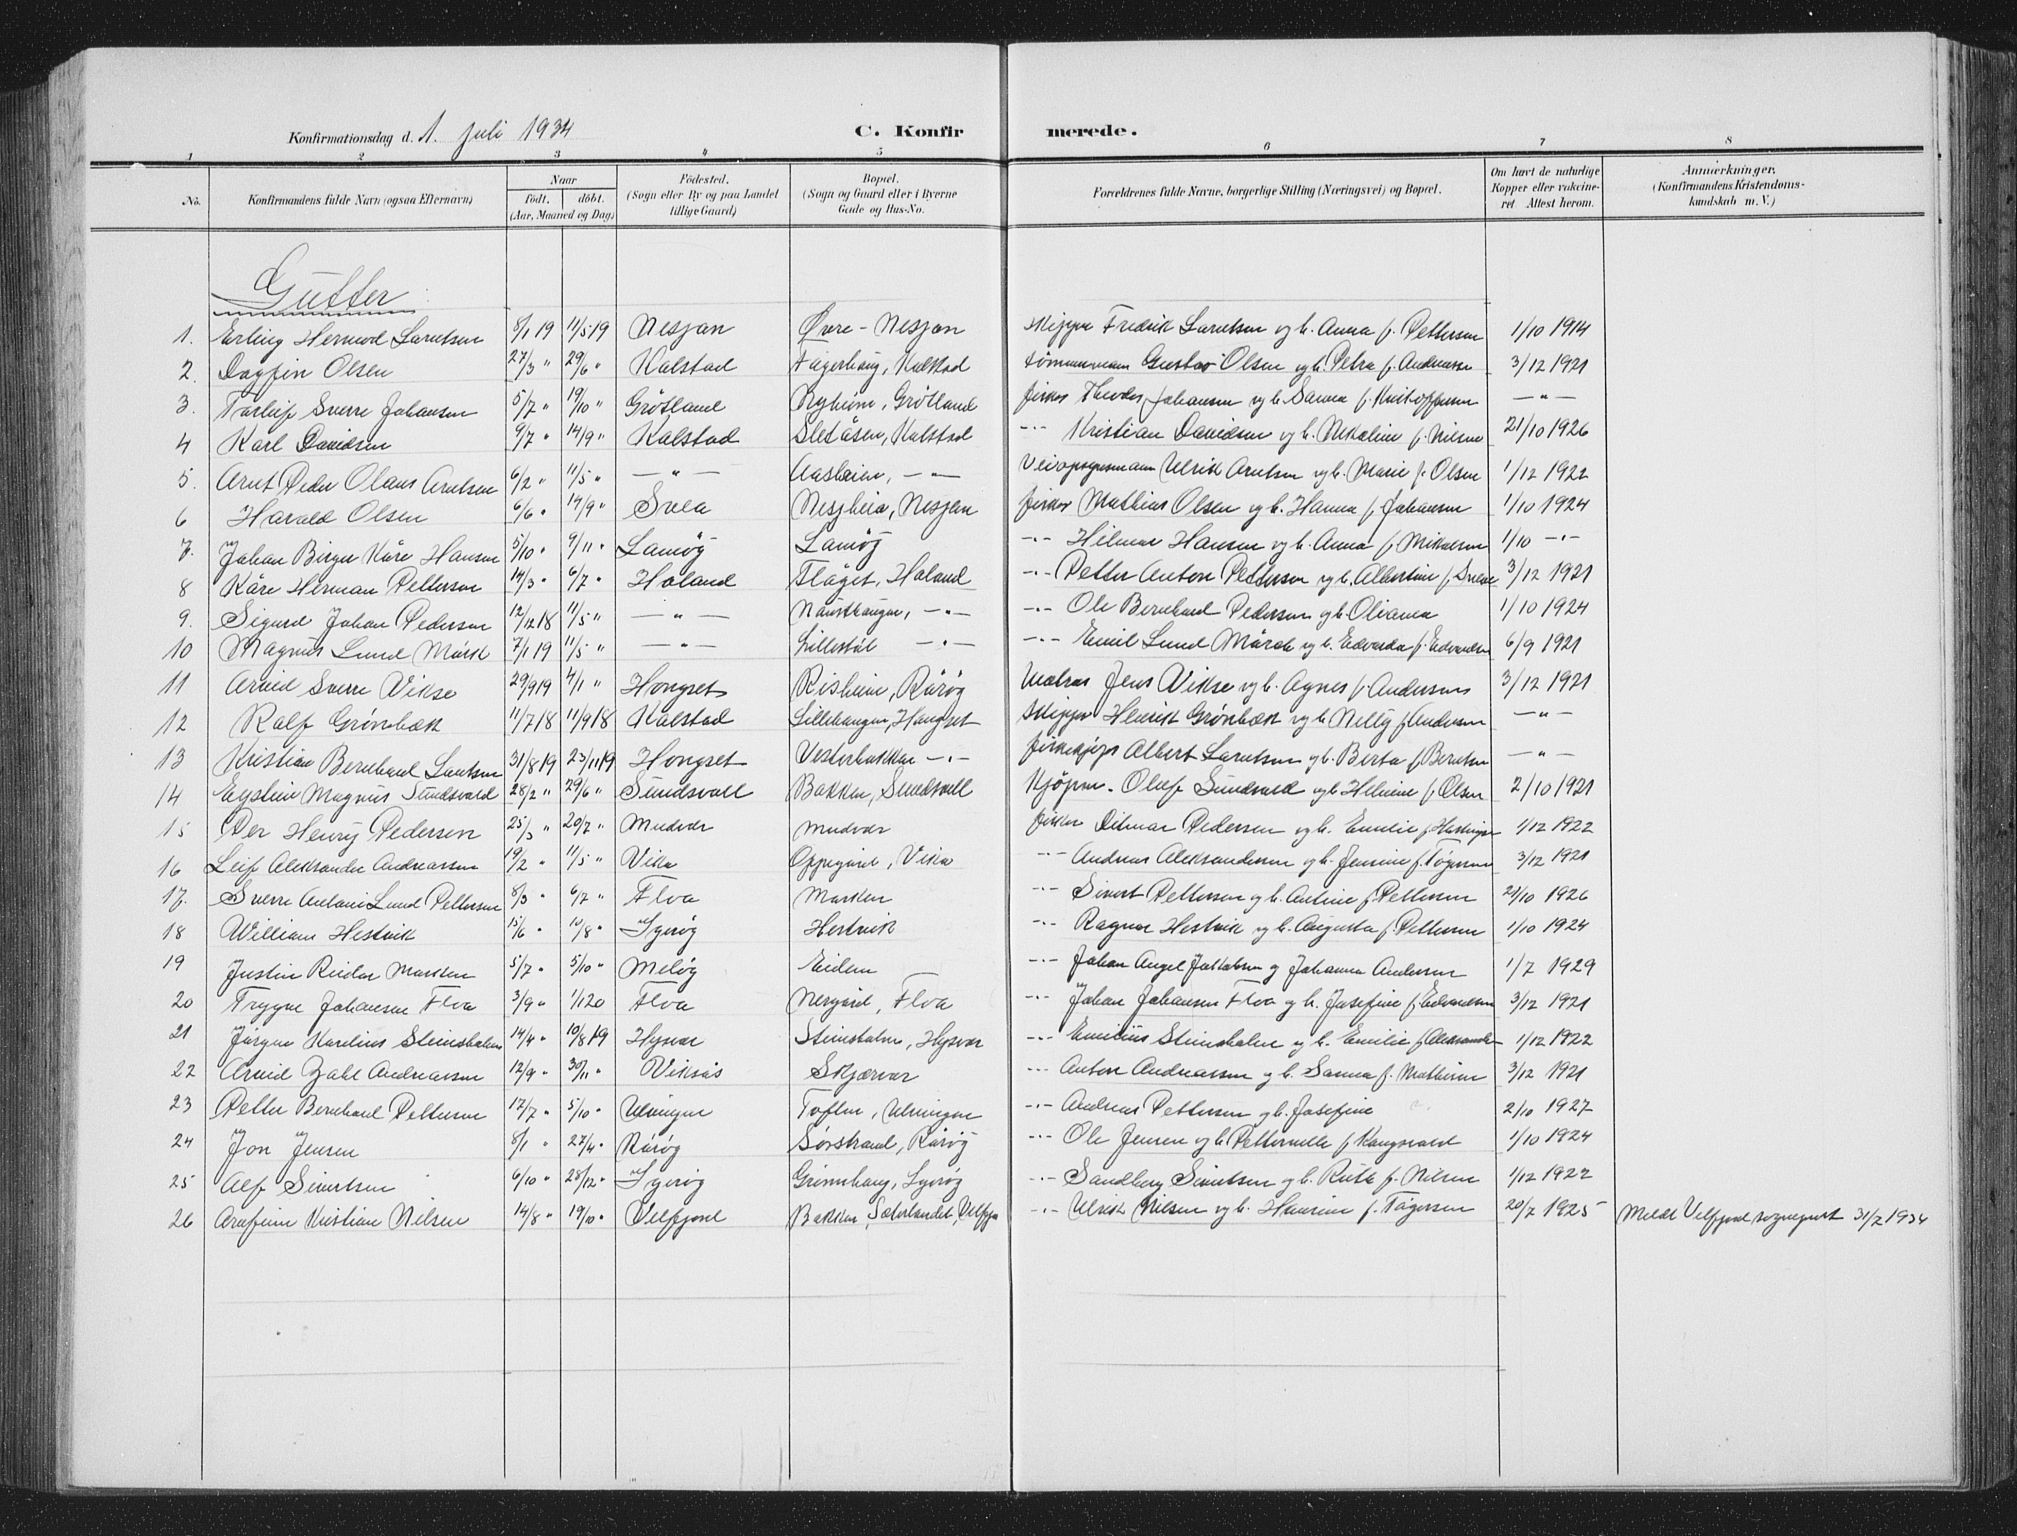 Konfirmationsdag d. 1. juli 1934 C. Konfirmerede.
1 2 3 4 5 6 7 8
No. Konfirmandens fulde Navn (ogsaa Efternavn) Naar født. døbt. (Aar, Maaned og Dag) Fødested. (Sogn eller By og paa Landet tillige Gaard) Bopæl. (Sogn og Gaard eller i Byerne Gade og Hus-No. Forældrenes fulde Navne, borgerlige Stilling (Næringsvei) og Bopæl. Om havt de naturlige Kopper eller vakcineret Attest herom. Anmærkninger. (Konfirmandens Kristendomskundskab m. V.)
Gutter
1. Erling Hermod Larntsen 8/1 19 11/5 19 Nesjan Øvre - Nesjan Skipper Fredrik Larntsen og h. Anna f. Pettersen 1/10 1914
2. Dagfin Olsen 27/3 " 29/6 " Kalstad Fagerhaug, Kalstad tømmermann Gustav Olsen og h. Petra f. Andreasse 3/12 1921
3. Torleif Sverre Johansen 5/7 " 19/10 " Grøtland Nyheim, Grøtland fisker Theodor Johansen og h. Sanna f. Kristoffersen -"-
4 Karl Davidsen 9/7 " 14/9 " Kalstad Sletåsen, Kalstad -"- Kristian Davidsen og h. Nikoline f. Nilsen 21/10 1926
5. Arnt Peder Olaus Arntsen 6/2 " 11/5 " -"- Aasheien, -"- Veiopsynsmann Ulrik Arntsen og h. Marie f. Olsen 1/12 1922
6 Harald Olsen 6/6 " 14/9 " Svea Nesjheia, Nesjan fisker Mathias Olsen og h. Hanna f. Johansen 1/10 1924
7. Johan Birger Kåre Hansen 5/10 " 9/11 " Lamøy Lamøy -"- Hilmar Hansen og h. Anna f. Mikalsen 1/10 -"-
8 Kåre Herman Pettersen 14/3 " 6/7 " Holand Flåget, Holand -"- Petter Anton Pettersen og h. Albertine f. 3/12 1921
9. Sigurd Johan Pedersen 12/12 18 11/5 " -"- Nausthaugen, -"- -"- Ole Bernhard Pedersen og h. Oliania 1/10 1924
10 Magnus Lund Mårsk 7/1 19 11/5 " -"- Lillestøl -"- -"- Emil Lund Mårck og h. Edvarda f. Edvardsen 6/9 1921
11 Arvid Sverre Vikse 29/9 19 4/1 " Hongset Risheim, Rårøy Matros Jens Vikse og h. Agnes f. Andersen 3/12 1921
12 Ralf Grønbæk 11/7 18 11/9 18 Kalstad Lillehaugen, Hongset Skipper Henrik Grønbæk og h. Nelly f. Andersen -"-
13 Kristian Bernhard Larntsen 31/8 19 23/11 19 Hongset Vesterbakken -"- Albert Larntsen og h. Berta f. Berntsen -"-
14 Eystein Magnus Sundsvold 28/2 " 29/6 " Sundsvoll Bakken, Sundsvoll Kjøpm. Oluf Sundsvold og h. Helmine f. Olsen 2/10 1921
15 Per Henry Pedersen 25/3 " 20/7 " Mudvær Mudvær fisker Ditmar Pedersen og h. Emilie f. 1/12 1922
16 Leif Aleksander Andreassen 19/2 " 11/5 " Vika Oppegård, Vika -"- Andreas Aleksandersen og h. Jensine f. Tøgersen 3/12 1921
17. Sverre Antoni Lund Pettersen 8/3 " 6/7 " Flva Marken -"- Sivert Pettersen og h. Antine f. Pettersen 21/10 1926
18 William Hestvik 15/6 " 10/8 " Igerøy Hestvik -"- Ragnar Hestvik og h. Augusta f. Pettersen 1/10 1924
19 Justin Reidar Marken 5/7 " 5/10 " Meløy Eidem -"- Johan Angel Jakobsen og Johanna Andersen 1/7 1929
20 Trygve Johansen Flva 3/9 " 1/1 20 Flva Nergård, Flva -"- Johan Johansen Flva og h. Josefine f. Edvardsen 3/12 1921
21 Jørgen Karelius Steinsholm 14/4 " 10/8 19 Hysvær Steinsholm, Hysvær -"- Emilius Steinsholm og h. Emilie f. Aleksander 1/12 1922
22 Arvid Zahl Andreassen 12/9 " 30/11 " Viksås Skjærvær -"- Anton Andreassen og h. Sanna f. Mathisen 3/12 1921
23 Petter Bernhard Pettersen 12/7 " 5/10 " Ulvingen Toften, Ulvingen -"- Andreas Pettersen og h. Josefine 2/10 1927
24 Jon Jensen 8/1 " 27/4 " Rårøy Sørstrand, Rårøy -"- Ole Jensen og h. Petternelle f. Kongsvold 1/10 1924
25 Alf Sivertsen 6/10 " 28/12 " Igerøy Grønnhaug, Igerøy -"- Sandberg Sivertsen og h. Ruth f. Nilsen 1/12 1922
26 Arnfinn Kristian Nilsen 14/8 " 19/10 " Velfjord Bakken, Sæterlandet, Velfjor -"- Ulrik Nilsen og h. Hansine f. Tøgersen 20/7 1925 Meldt Velfjord sogneprest 31/7 1934